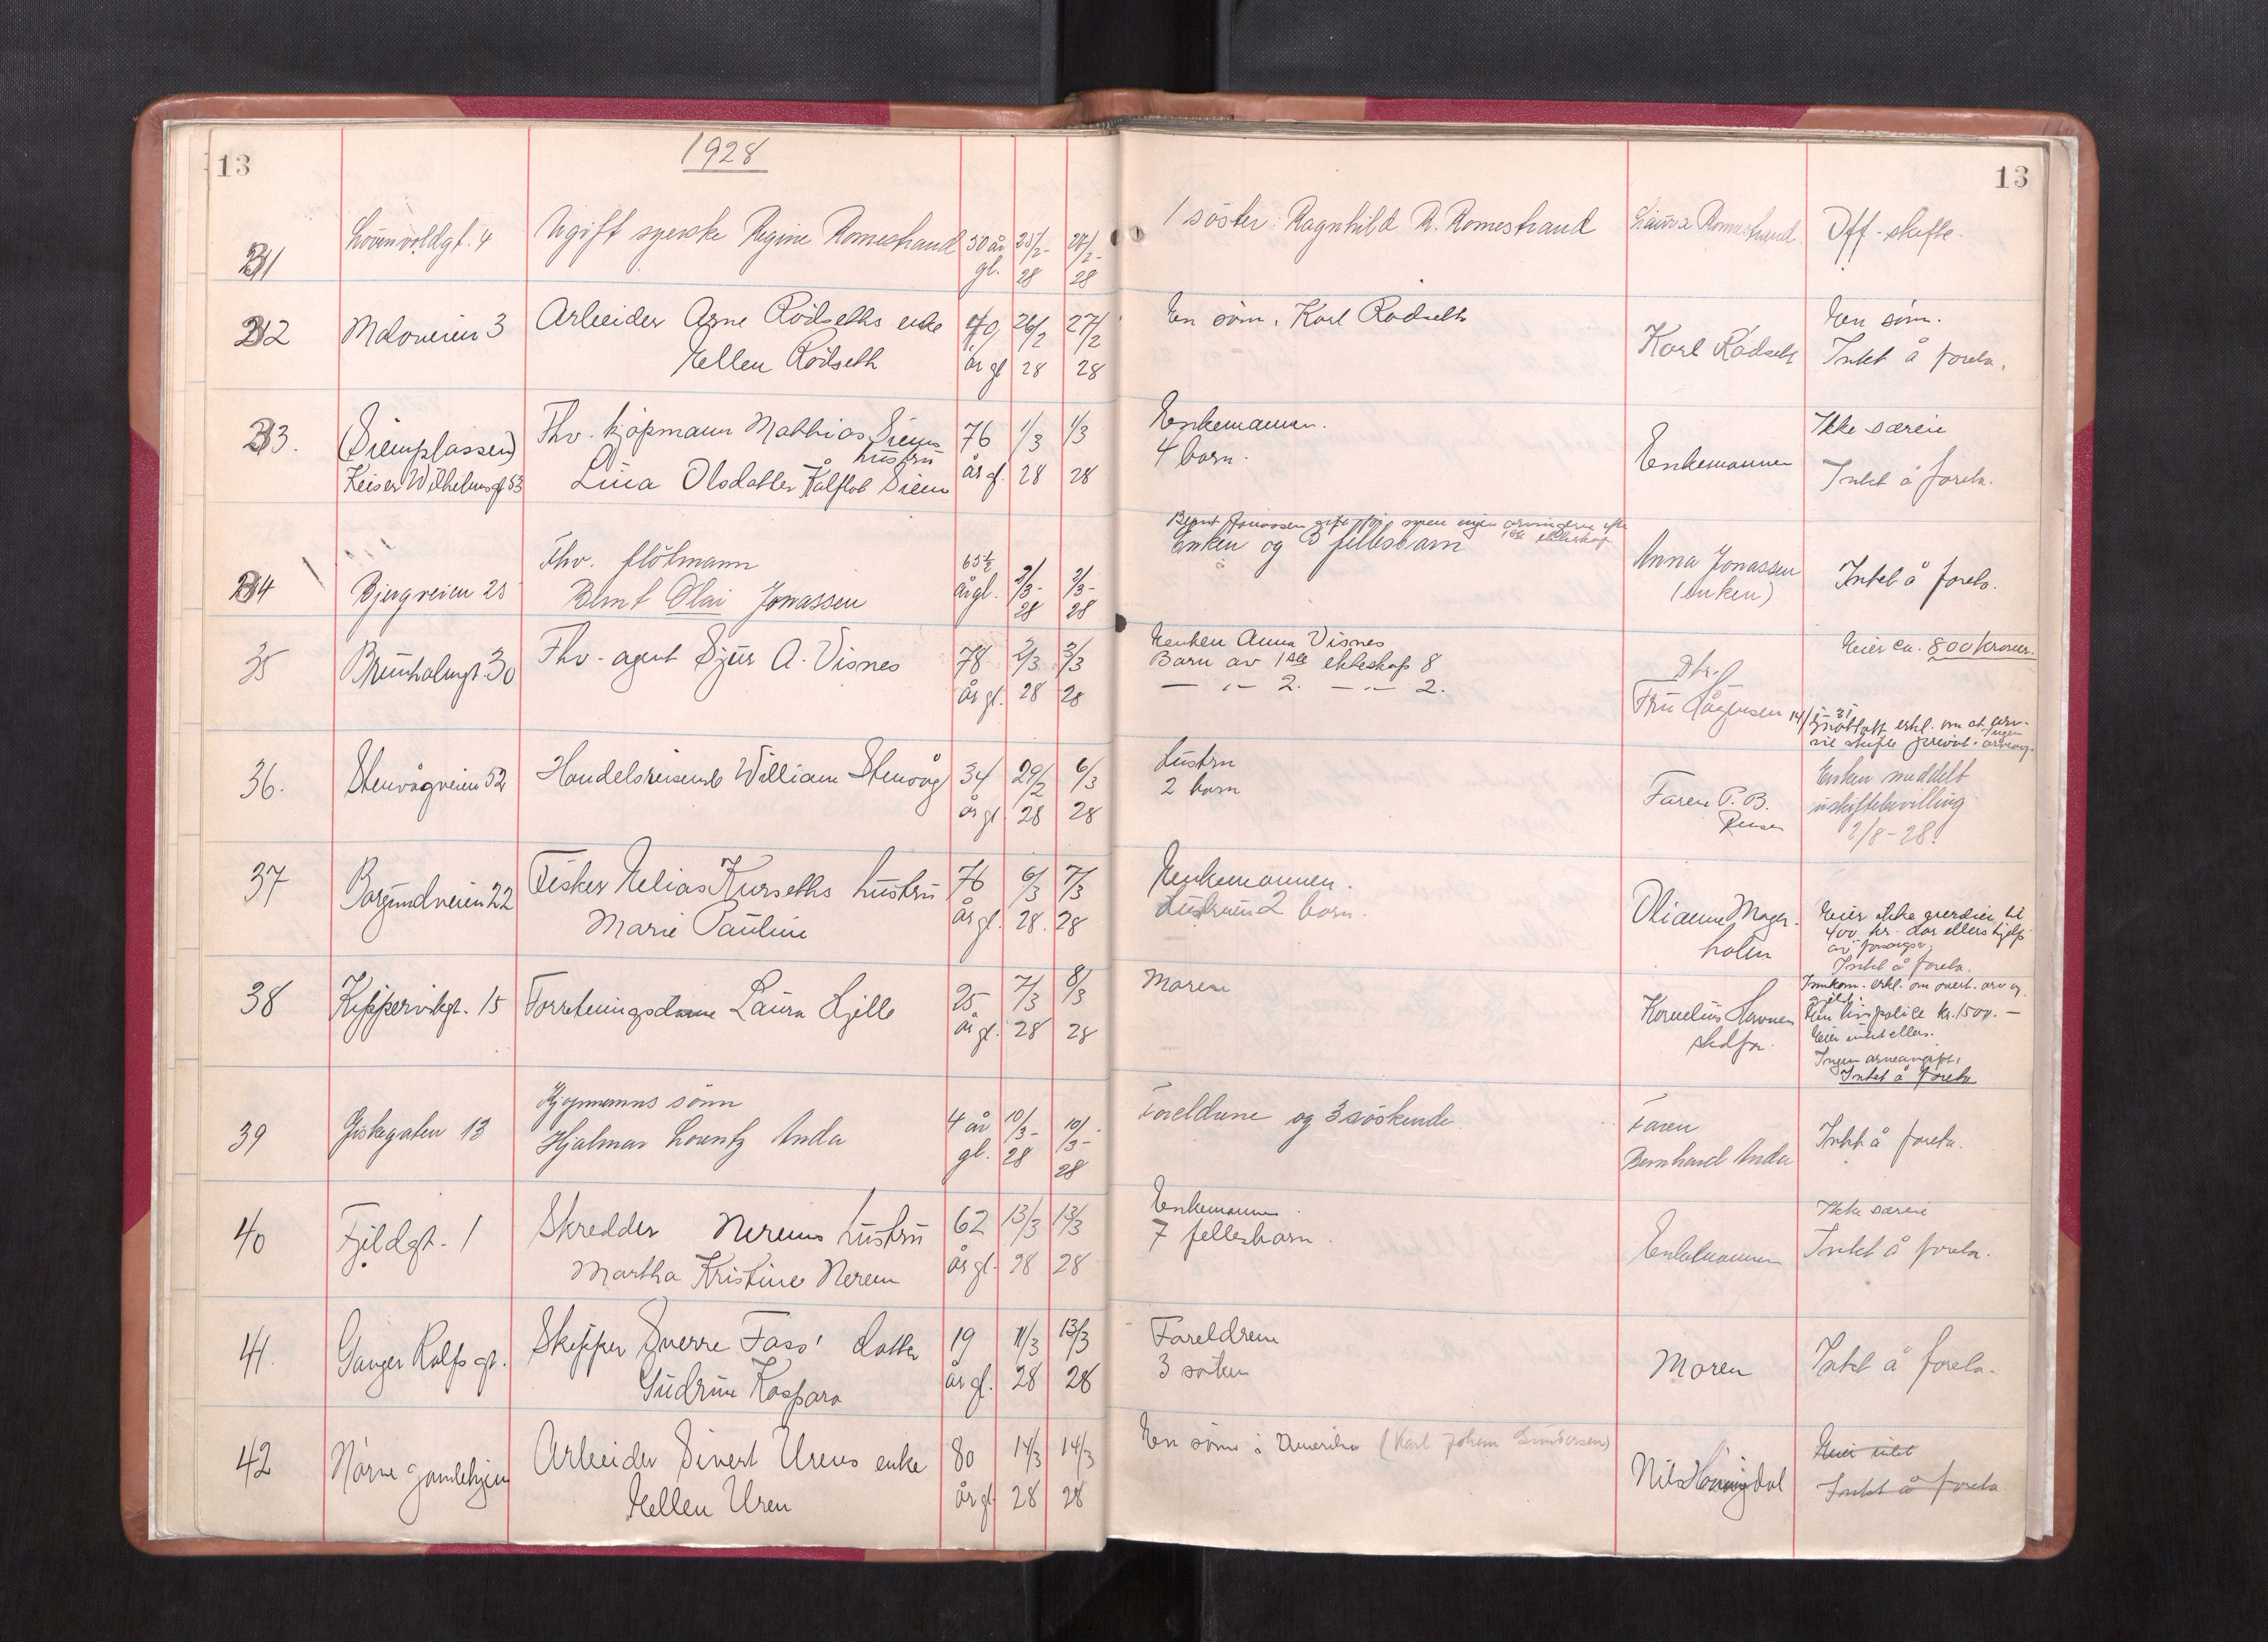 13
1928
13
31
Lovenvoldgt. 4
Ugift syerske Regine Romestrand
50 år gl.
25/2- 28
28
1 söster: Ragnhild R. Romestrand
Laura Romestrand
Off. skifte.
32
Moloveien 3
Arbeider Arne Rödseths enke
Hellen Rödseth
70 år gl
26/2 28
27/2 28
En sönn. Karl Rödseth
Karl Rödseth
En sönn.
Intet å foreta.
33.
(Siemplassen)
Keiser Wilhelmsgt 53
Fhv. kjöpmann Mathias Siems
hustru
Lina Olsdatter Kalflot Siem
76 år gl.
1/3 28
1/3 28
Enkemannen.
4 barn.
Enkemannen
Ikke særeie
Intet å foreta.
34
Bjergveien 25
Fhv. flötmann
Bernt Olai Jonassen
65½ år gl.
2/3- 28
2/3- 28
Bernt Jonassen gift før men ingen arvinger efter
1ste ekteskap
Enken og 3 fellesbarn
Anna Jonassen
(Enken)
Intet å foreta.
35
Brunholmgt. 30
Fhv. agent Sjur A. Visnes
78 år gl.
2/3 28
3/3 28
Enken Anna Visnes
Barn av 1ste ekteskap 8
— " — 2. — " — 2.
Dtr.
Fru Hågensen
Eier ca. 800 kroner.
14/ - 31
mottatt erkl. om at arv.
vil skifte privat. Ingen arveavg.
36.
Stenvågveien 52
Handelsreisende William Stenvåg
34 år gl
29/2 28
6/3 28
Hustru
2 barn
Faren P. B.
Enken meddelt
uskiftebevilling
2/8-28.
37
Borgundveien 22
Fisker Helias Kurseths hustru
Marie Pauline
76 år gl.
6/3 28.
7/3 28
Enkemannen.
Hustruens 2 barn.
Olianne Mager-
holm
Eier ikke gverdier til
400 kr. Har ellers hjelp
av forsorgsv.
Intet å foreta.
38
Kippervikgt. 15
Forretningsdame Laura Hjelle
25 år gl.
7/3 28
8/3 28
Moren
Kornelius
stedfar.
Innkom. erkl. om overt. arv og
gjeld.
En livspolice kr. 1500.—
Eier intet ellers.
Ingen arveavgift.
Intet å foreta
39
Giskegaten 13
Kjöpmanns sönn
Hjalmar Lorentz Anda
4 år gl.
10/3- 28
10/3- 28
Foreldrene og 3 söskende.
Faren
Bernhard Anda
Intet å foreta.
40
Fjeldgt. 1
Skredder Nerems hustru
Martha Kristine Nerem
62 år gl.
13/3 28
13/3 28
Enkemannen.
7 fellesbarn.
Enkemannen
Ikke særeie
Intet å foreta.
41.
Ganger Rolfs gt.
Skipper Sverre Fass' datter
Gudrun Kaspara
19 år gl.
11/3 28
13/3 28
Foreldrene
3 søsken
Moren
Intet å foreta.
42
Nörve gamlehjem
Arbeider Sivert Urens enke
Hellen Uren
80 år gl
14/3 28
14/3 28
En sönn i Amerika (Karl Johan Gundersen)
Nils
Eier intet
Intet å foreta